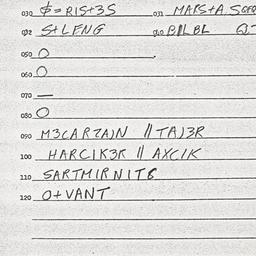 030 $=RIS+3S 031 MARS+A SQFQ
012 S+LFNG 010 BILBL
050 O
060 O
070 —
080 O
090 M3CARZAJN //TAJ3R
100 HARCIK3K // AXCIK
110 SARTMIRNIT8
120 O+VANT